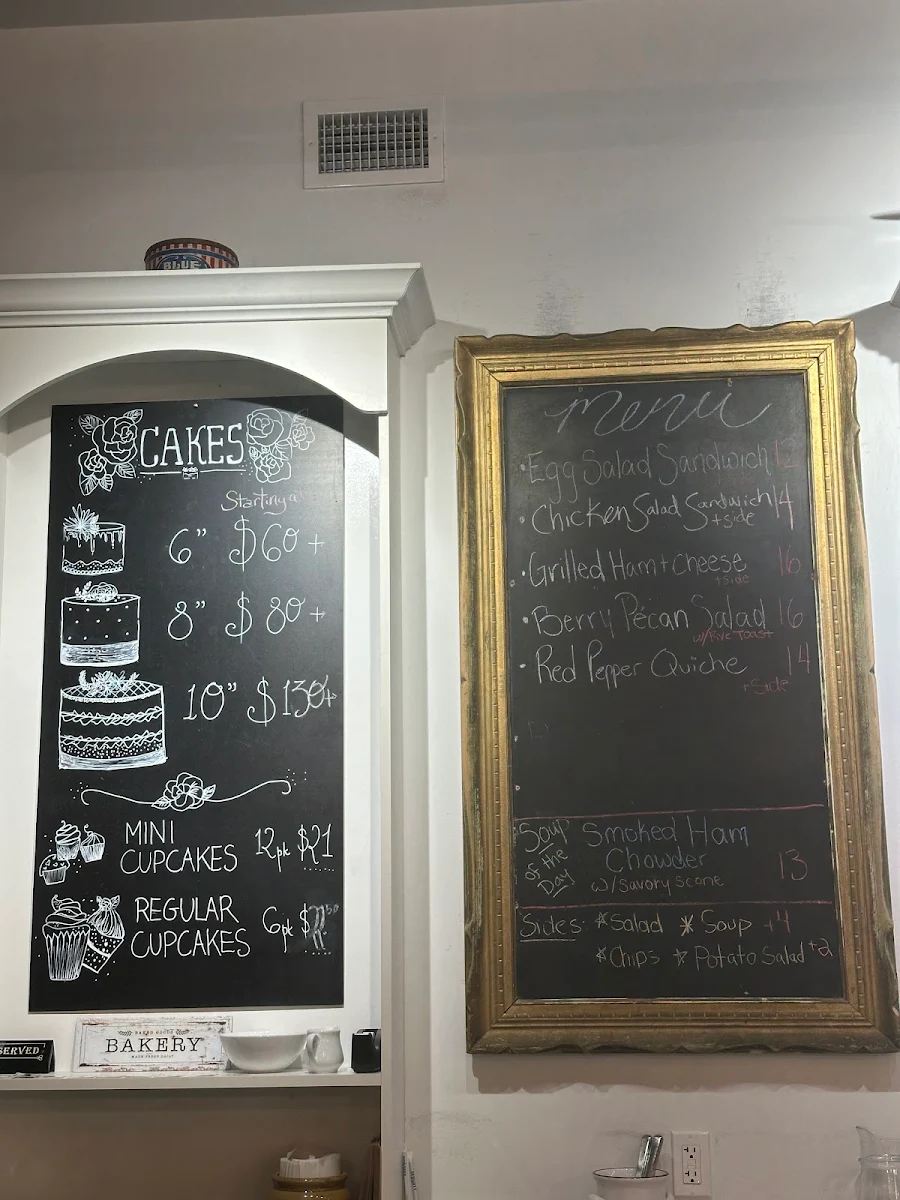 BLUE
CAKES
Starting a
6" $60+
8" $80+
10" $130+
MINI
CUPCAKES 12pk $21
REGULAR
CUPCAKES 6pk
SERVED
BAKED GOODS
BAKERY
MADE FRESH DAILY
menu
• Egg Salad Sandwich 12
• Chicken Salad Sandwich 14
+side
• Grilled Ham + Cheese 16
+side
• Berry Pecan Salad 16
w/Rye Toast
• Red Pepper Quiche 14
+Side
Soup of the Day
Smoked Ham
Chowder
w/savory scone 13
Sides: *Salad *Soup +4
*Chips *Potato Salad +2